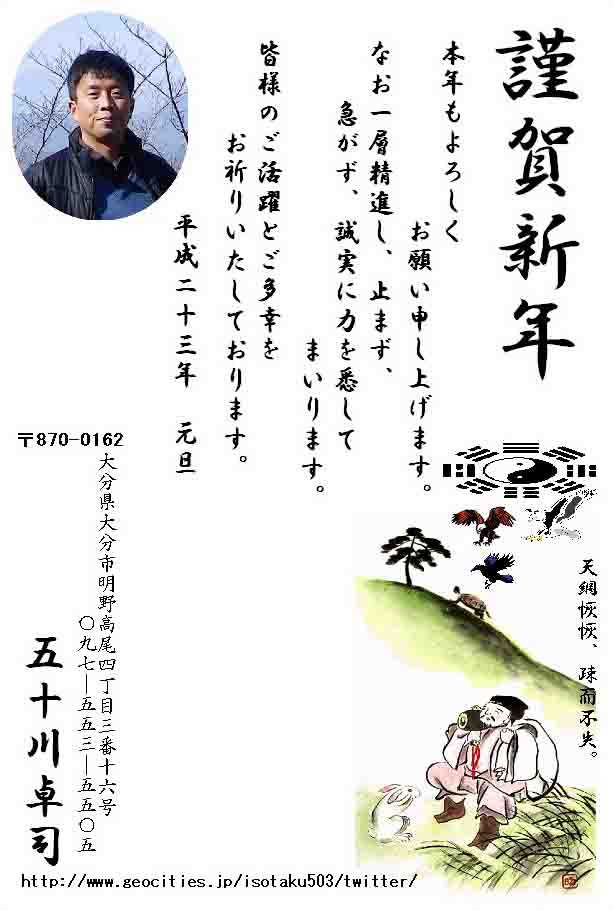 謹賀新年
本年もよろしく
お願い申し上げます。
なお一層精進し、止まず、
急がず、誠実に力を悉して
まいります。
皆様のご活躍とご多幸を
お祈りいたしております。
平成二十三年　元旦
天網恢恢、疎而不失。
〒870-0162
大分県大分市明野高尾四丁目三番十六号
〇九七―五五三―五五〇五
五十川卓司
http://www.geocities.jp/isotaku503/twitter/